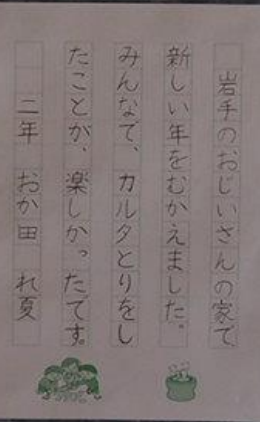 岩手のおじいさんの家で
新しい年をむかえました。
みんなで、カルタとりをし
たことが、楽しかったです。
二年 おか田 れ夏